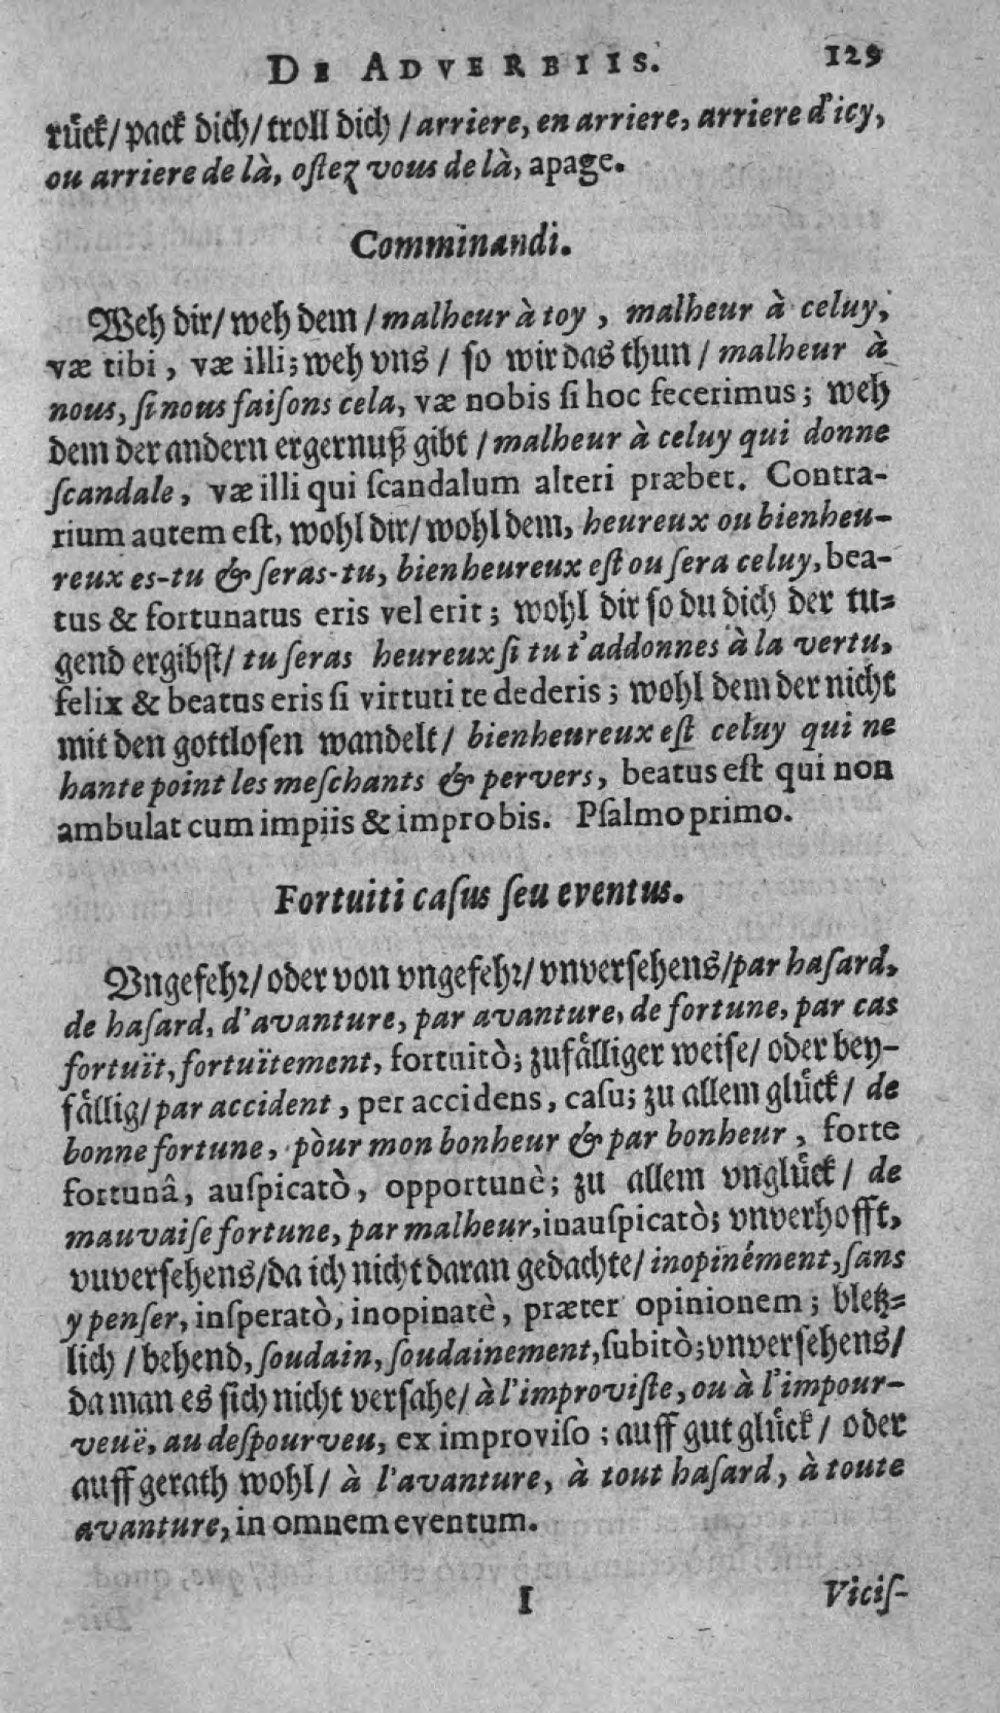 DE ADVERBIIS. 129
růck/ pack dich/ troll dich / arriere, en arriere, arriere d'icy,
ou arriere de là, oſtez vous de là, apage.
Comminandi.
Weh dir/ weh dem / malheur à toy, malheur à celuy,
væ tibi, væ illi; weh vns / ſo wir das thun / malheur à
nous, ſi nous faiſons cela, væ nobis ſi hoc fecerimus; weh
dem der andern ergernuß gibt / malheur à celuy qui donne
ſcandale, væ illi qui ſcandalum alteri præbet. Contra-
rium autem eſt, wohl dir/ wohl dem, heureux ou bienheu-
reux es-tu & ſeras-tu, bienheureux eſt ou ſera celuy, bea-
tus & fortunatus eris vel erit; wohl dir ſo du dich der tu-
gend ergibſt/ tu ſeras heureux ſi tu t'addonnes à la vertu,
felix & beatus eris ſi virtuti te dederis; wohl dem der nicht
mit den gottloſen wandelt/ bienheureux eſt celuy qui ne
hante point les meſchants & pervers, beatus eſt qui non
ambulat cum impiis & improbis. Pſalmo primo.
Fortuiti caſus ſeu eventus.
Vngefehr/ oder von vngefehr/ vnverſehens/ par haſard,
de haſard, d'avanture, par avanture, de fortune, par cas
fortuït, fortuïtement, fortuitò; zufålliger weiſe/ oder bey-
fållig/ par accident, per accidens, caſu; zu allem glůck/ de
bonne fortune, pòur mon bonheur & par bonheur, forte
fortunâ, auſpicatò, opportunè; zu allem vnglůck/ de
mauvaiſe fortune, par malheur, inauſpicatò; vnverhofft,
vuverſehens/ da ich nicht daran gedachte/ inopinément, ſans
y penſer, inſperatò, inopinatè, præter opinionem; bletz-
lich / behend, ſoudain, ſoudainement, ſubitò; vnverſehens/
da man es ſich nicht verſahe/ à l'improviſte, ou à l'impour-
veuë, au deſpourveu, ex improviſo; auff gut glůck/ oder
auff gerath wohl/ à l'avanture, à tout haſard, à toute
avanture, in omnem eventum.
I Viciſ-